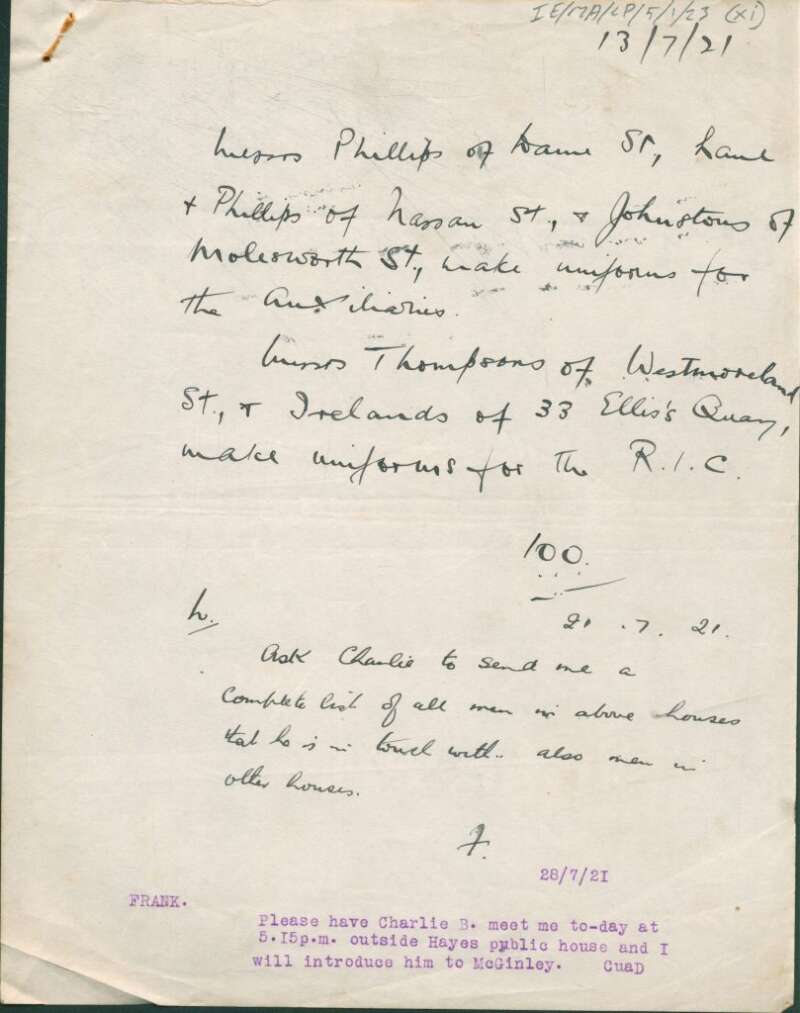 IE/MA/CP/5/1/23 (xi)
13/7/21
Messrs Phillips of Dame St, Lane
+ Phillips of Nassau St., + Johnstons of
Molesworth St., make uniforms for
the Auxiliaries.
Messrs Thompsons of Westmoreland
St., + Irelands of 33 Ellis's Quay,
make uniforms for the R.I.C.
100.
21.7.21.
Ask Charlie to send me a
complete list of all men in above houses
that he is in touch with - also men in
other houses.
F.
28/7/21
FRANK.
Please have Charlie B. meet me to-day at
5.I5p.m. outside Hayes public house and I
will introduce him to McGinley. GuaD